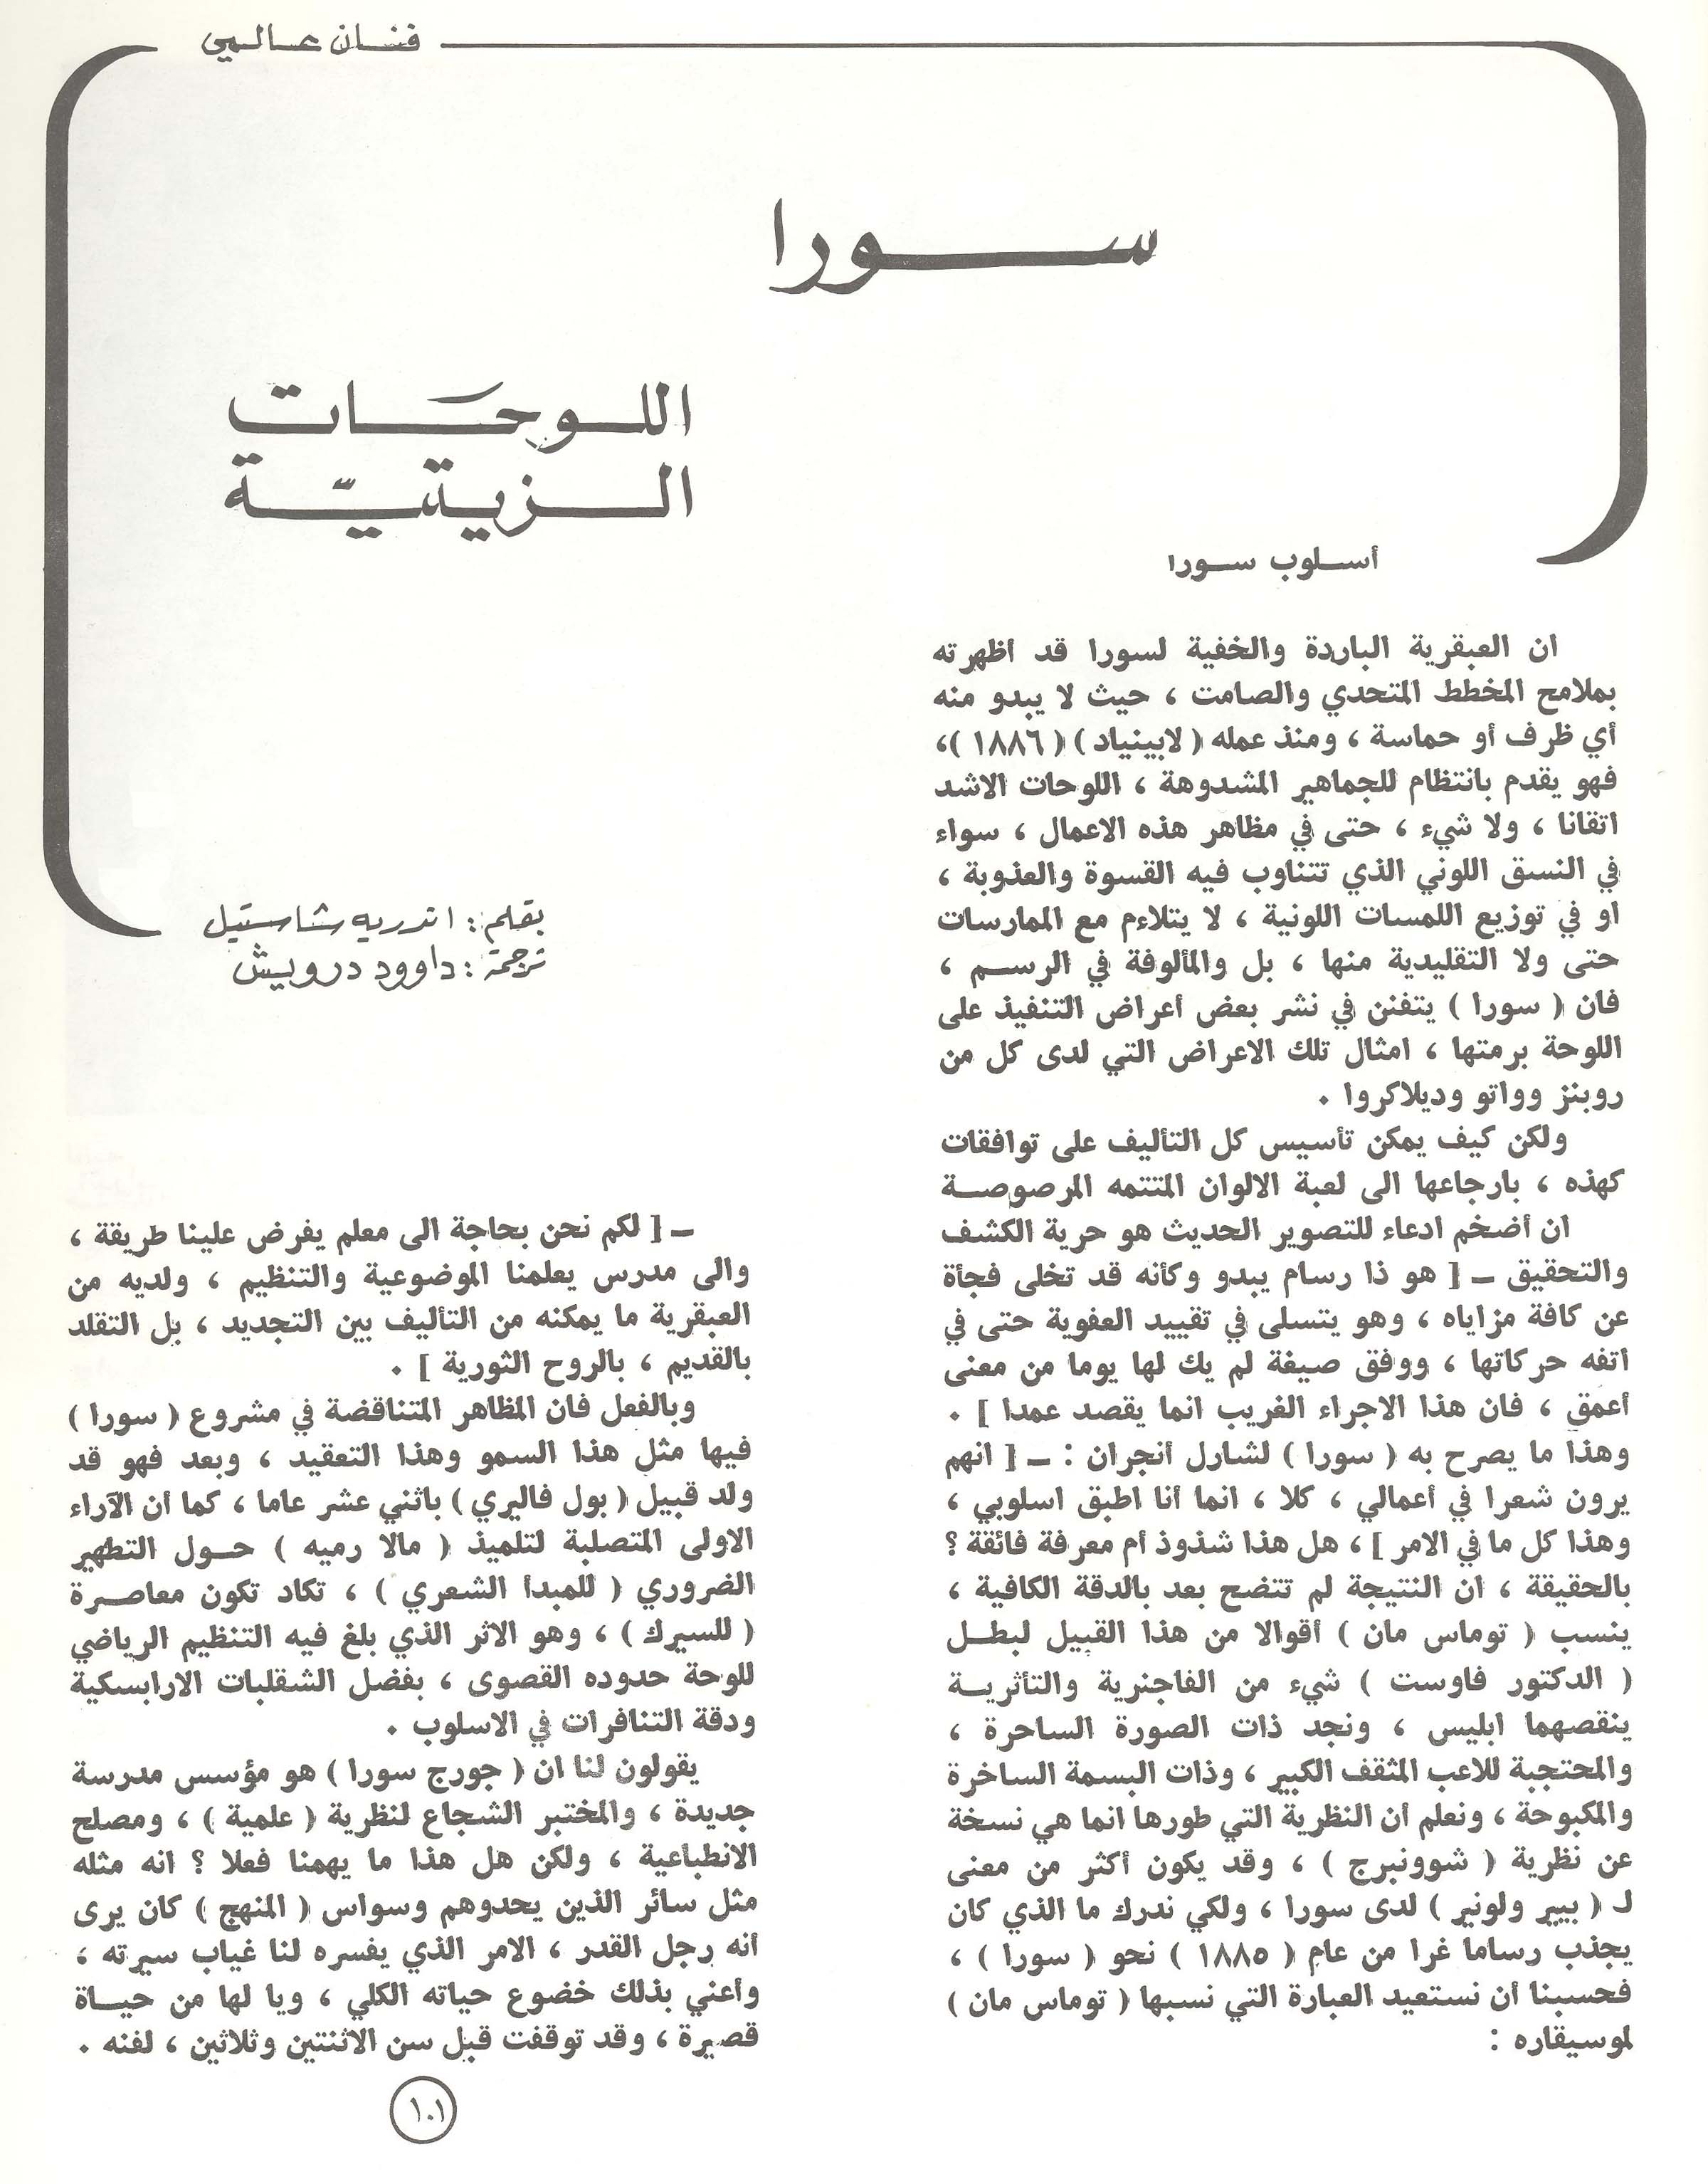 فنان عالمي
سورا
اللوحات
الزيتيّة
بقلم : اندريه شاستيل
ترجمة : داوود درويش
أسلوب سورا
ان العبقرية الباردة والخفية لسورا قد أظهرته
بملامح المخطط المتحدي والصامت ، حيث لا يبدو منه
أي ظرف أو حماسة ، ومنذ عمله ( لابينياد ) ( ١٨٨٦ )،
فهو يقدم بانتظام للجماهير المشدوهة ، اللوحات الاشد
اتقانا ، ولا شيء ، حتى في مظاهر هذه الاعمال ، سواء
في النسق اللوني الذي تتناوب فيه القسوة والعذوبة ،
او في توزيع اللمسات اللونية ، لا يتلاءم مع الممارسات
حتى ولا التقليدية منها ، بل والمألوفة في الرسم ،
فان ( سورا ) يتفنن في نشر بعض أعراض التنفيذ على
اللوحة برمتها ، امثال تلك الاعراض التي لدى كل من
روبنز وواتو وديلاكروا .
ولكن كيف يمكن تأسيس كل التأليف على توافقات
كهذه ، بارجاعها الى لعبة الالوان المتتمه المرصوصة
ان أضخم ادعاء للتصوير الحديث هو حرية الكشف
والتحقيق ـ [ هو ذا رسام يبدو وكأنه قد تخلى فجأة
عن كافة مزاياه ، وهو يتسلى في تقييد العفوية حتى في
اتفه حركاتها ، ووفق صيغة لم يك لها يوما من معنى
أعمق ، فان هذا الاجراء الغريب انما يقصد عمدا ] .
وهذا ما يصرح به ( سورا ) لشارل أنجران : ـ [ انهم
يرون شعرا في أعمالي ، كلا ، انما أنا اطبق اسلوبي ،
وهذا كل ما في الامر ] ، هل هذا شذوذ أم معرفة فائقة ؟
بالحقيقة ، ان النتيجة لم تتضح بعد بالدقة الكافية ،
ينسب ( توماس مان ) أقوالا من هذا القبيل لبطل
( الدكتور فاوست ) شيء من الفاجنرية والتأثرية
ينقصهما ابليس ، ونجد ذات الصورة الساحرة ،
والمحتجبة للاعب المثقف الكبير ، وذات البسمة الساخرة
والمكبوحة ، ونعلم أن النظرية التي طورها انما هي نسخة
عن نظرية ( شوونبرج ) ، وقد يكون أكثر من معنى
لـ ( بيير ولونير ) لدى سورا ، ولكي ندرك ما الذي كان
يجذب رساما غرا من عام ( ١٨٨٥ ) نحو ( سورا ) ،
فحسبنا أن نستعيد العبارة التي نسبها ( توماس مان )
لموسيقاره :
ـ [ لكم نحن بحاجة الى معلم يفرض علينا طريقة ،
والى مدرس يعلمنا الموضوعية والتنظيم ، ولديه من
العبقرية ما يمكنه من التأليف بين التجديد ، بل التقلد
بالقديم ، بالروح الثورية ] .
وبالفعل فان المظاهر المتناقضة في مشروع ( سورا )
فيها مثل هذا السمو وهذا التعقيد ، وبعد فهو قد
ولد قبيل ( بول فاليري ) باثني عشر عاما ، كما أن الآراء
الاولى المتصلبة لتلميذ ( مالا رميه ) حول التطهير
الضروري ( للمبدأ الشعري ) ، تكاد تكون معاصرة
( للسيرك ) ، وهو الاثر الذي بلغ فيه التنظيم الرياضي
للوحة حدوده القصوى ، بفضل الشقلبات الارابسكية
ودقة التنافرات في الاسلوب .
يقولون لنا ان ( جورج سورا ) هو مؤسس مدرسة
جديدة ، والمختبر الشجاع لنظرية ( علمية ) ، ومصلح
الانطباعية ، ولكن هل هذا ما يهمنا فعلا ؟ انه مثله
مثل سائر الذين يحدوهم وسواس ( المنهج ) كان يرى
أنه رجل القدر ، الامر الذي يفسره لنا غياب سيرته ،
وأعني بذلك خضوع حياته الكلي ، ويا لها من حياة
قصيرة ، وقد توقفت قبل سن الاثنتين وثلاثين ، لفنه .
١٠١